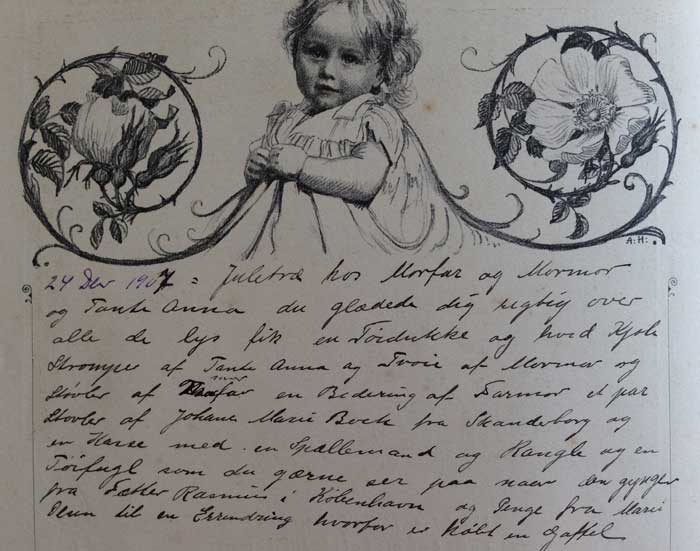 A:H:
24 Dec 1907 = Juletræ hos Morfar og Mormor
og Tante Anna du glædede dig rigtig over
alle de lys fik en Töidukke og hvid Kjole
Strömper af Tante Anna og Troie af Mormor og
Støvler af Morfar en Bedering af Farmor et par
Støvler af Johane Marie Bock fra Skanderborg og
en Harse med en Spællemand og Rangle og en
Töifugl som du gærne ser paa naar den gynger
fra Fætter Rasmus i København og Penge fra Marie
til en Errindring hvorfor er Købt en Gaffel